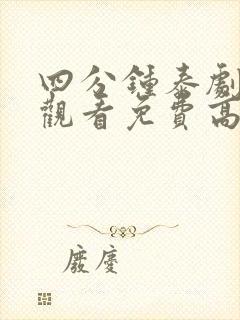 四分鍾泰劇
觀看免費高
廢慶